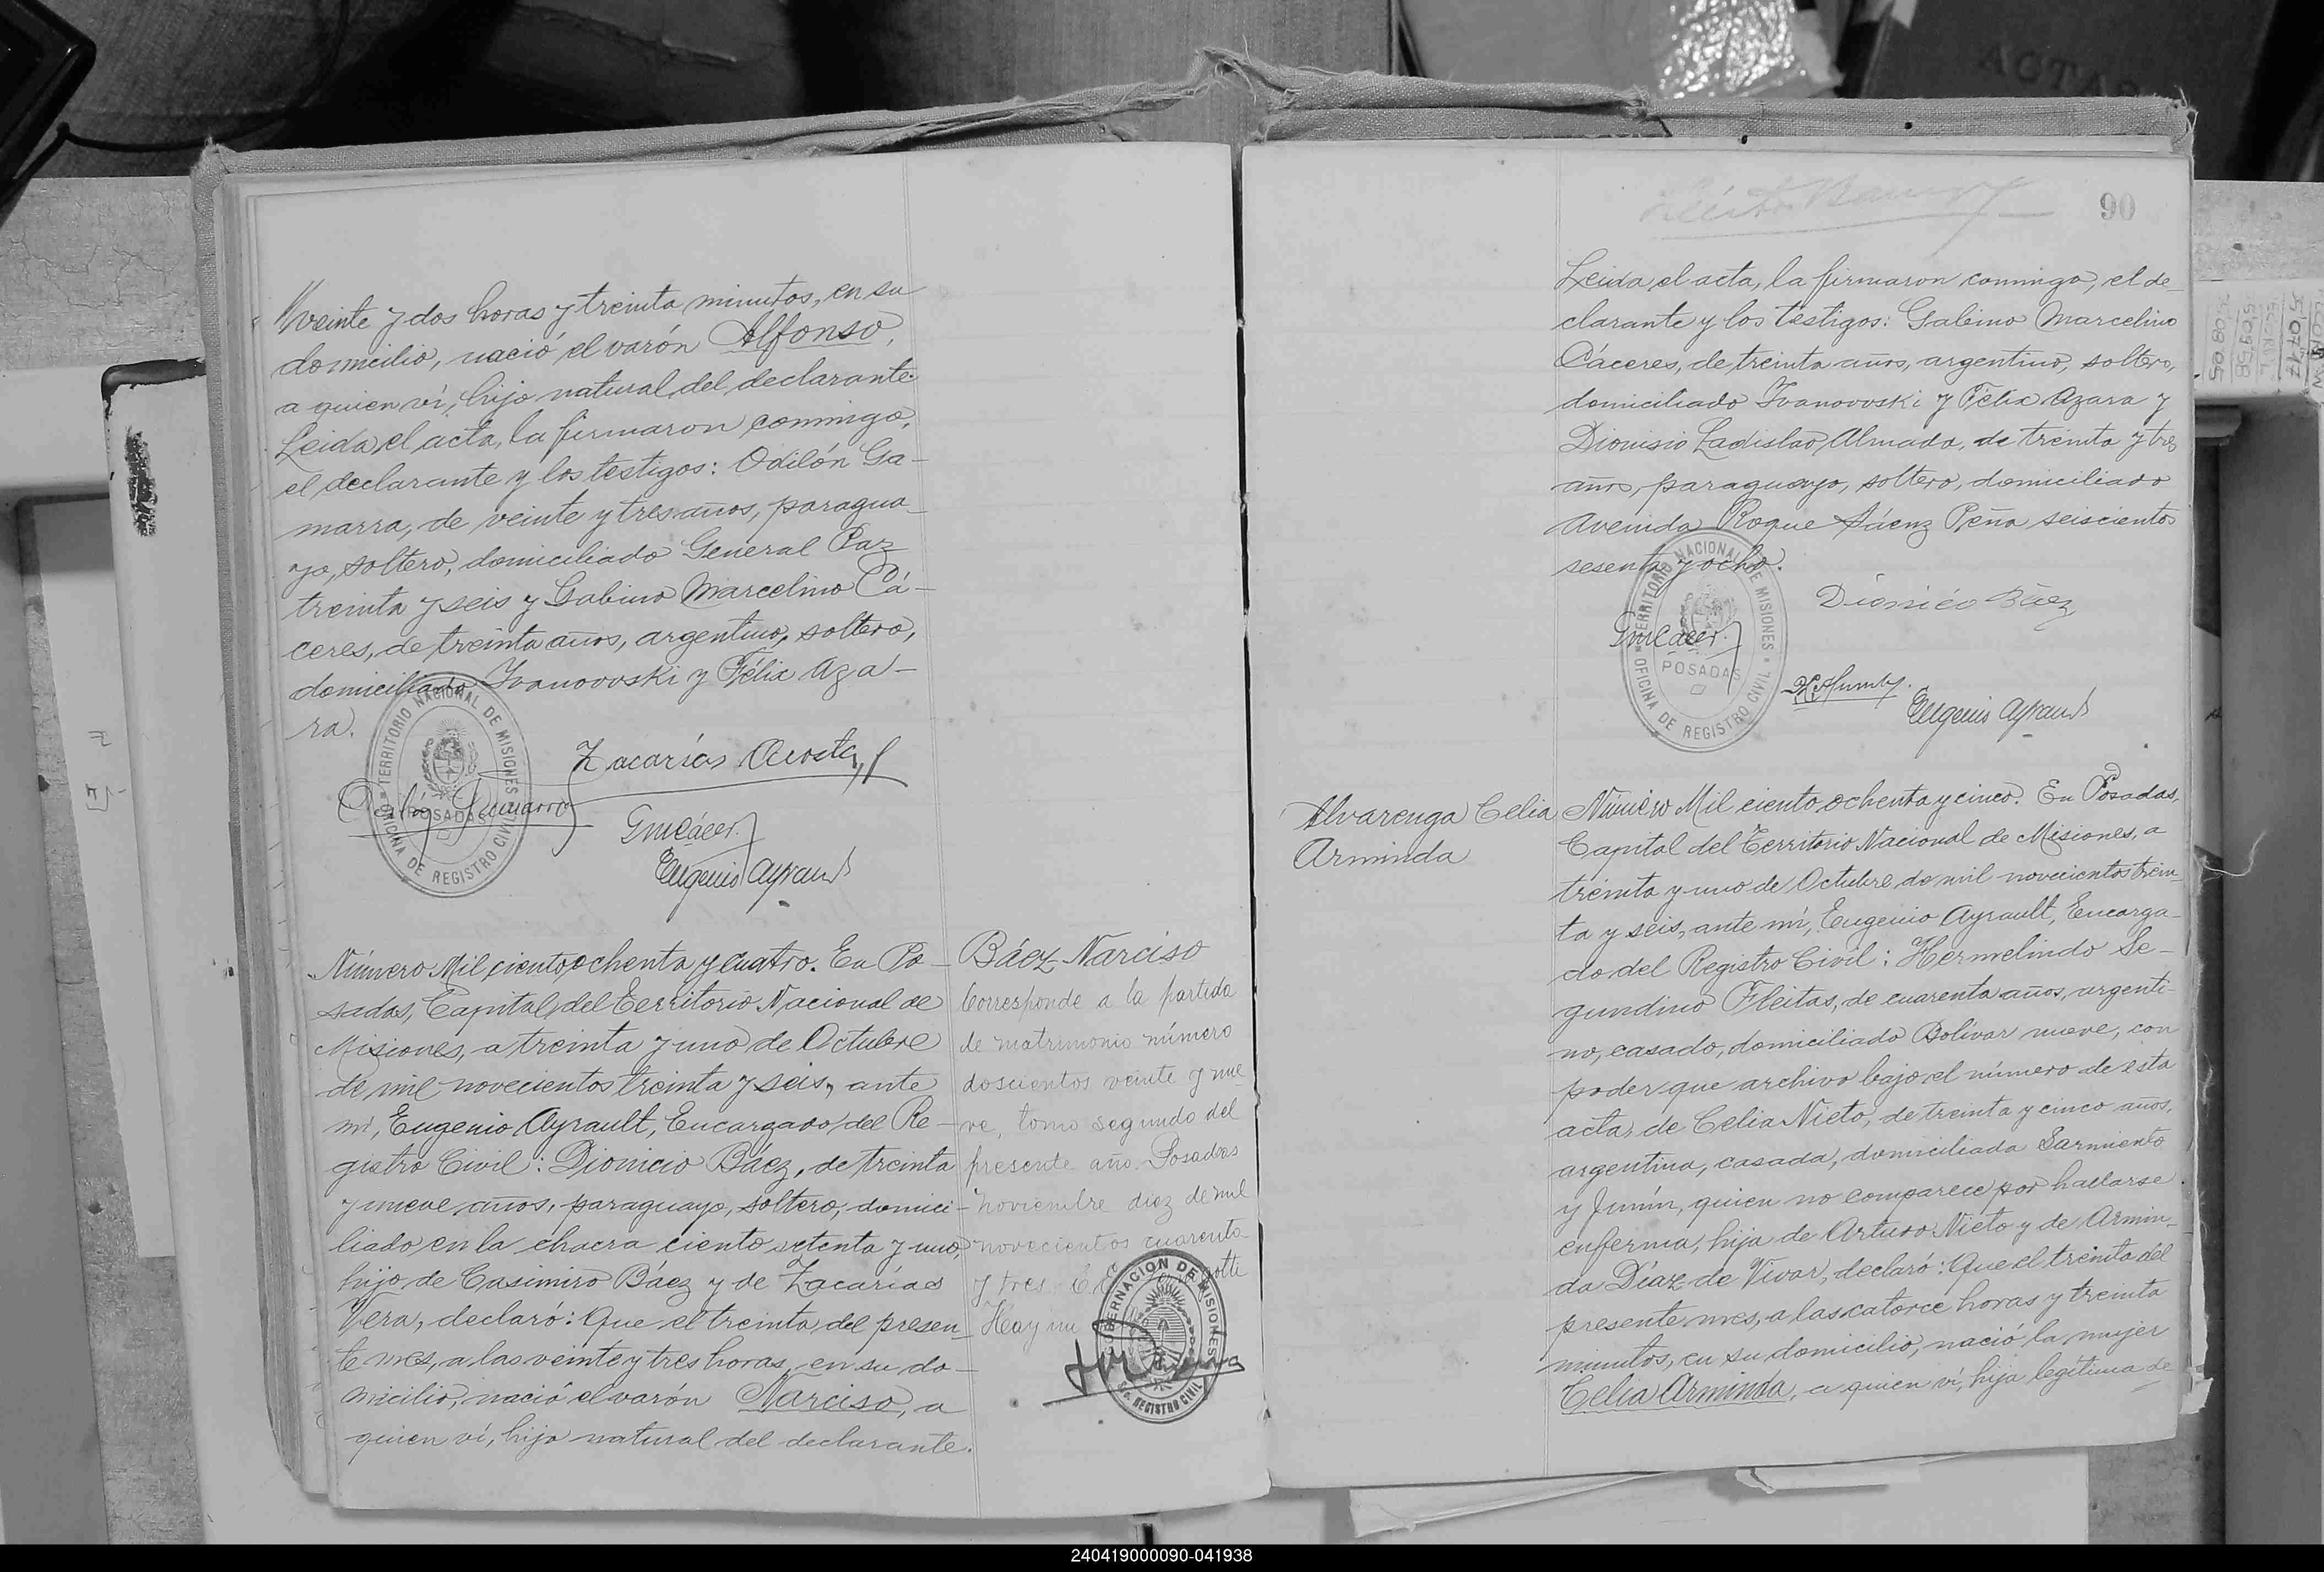 veinte y dos horas y treinta minutos, en su
domicilio, nació el varón Alfonso,
a quien ví, hijo natural del declarante.
Leida el acta, la firmaron conmigo,
el declarante y los testigos: Odilón Ga-
marra, de veinte y tres años, paragua-
yo, soltero, domiciliado General Paz
treinta y seis y Gabino Marcelino Cá-
ceres, de treinta años, argentino, soltero,
domiciliado Ivanovvski y Félix Aza-
ra.
TERRITORIO NACIONAL DE MISIONES
POSADAS
OFICINA DE REGISTRO CIVIL
Zacarías Acosta
GMCácer.
Eugenio Ayrault
Número Mil ciento ochenta y cuatro. En Po-
sadas, Capital del Territorio Nacional de
Misiones, a treinta y uno de Octubre
de mil novecientos treinta y seis, ante
mí, Eugenio Ayrault, Encargado del Re-
gistro Civil: Dionicio Báez, de treinta
y nueve años, paraguayo, soltero, domici-
liado en la chacra ciento setenta y uno,
hijo de Casimiro Báez y de Zacarías
Vera, declaró: Que el treinta del presen-
te mes, a las veinte y tres horas, en su do-
micilio, nació el varón Narciso, a
quien ví, hijo natural del declarante.
Báez Narciso
Corresponde a la partida
de matrimonio número
doscientos veinte y nue
ve, tomo segundo del
presente año. Posadas
noviembre diez de mil
novecientos cuarenta
y tres
Hay un
GOBERNACION DE MISIONES
REGISTRO CIVIL
90
Leida el acta, la firmaron conmigo, el de-
clarante y los testigos: Gabino Marcelino
Cáceres, de treinta años, argentino, soltero,
domiciliado Ivanovvski y Félix Azara y
Dionisio Ladislao Almada, de treinta y tres
años, paraguayo, soltero, domiciliado
Avenida Roque Sáenz Peña seiscientos
sesenta y ocho.
TERRITORIO NACIONAL DE MISIONES
POSADAS
OFICINA DE REGISTRO CIVIL
Dionicio Báez
GMCácer.
Eugenio Ayrault
Alvarenga Celia
Arminda
Número Mil ciento ochenta y cinco. En Posadas,
Capital del Territorio Nacional de Misiones, a
treinta y uno de Octubre de mil novecientos trein-
ta y seis, ante mí, Eugenio Ayrault, Encarga-
do del Registro Civil: Hermelindo Se-
gundino Fleitas, de cuarenta años, argenti-
no, casado, domiciliado Bolívar nueve, con
poder que archivo bajo el número de esta
acta, de Celia Nieto, de treinta y cinco años,
argentina, casada, domiciliada Sarmiento
y Junín, quien no comparece por hallarse
enferma, hija de Arturo Nieto y de Armin-
da Díaz de Vivar, declaró: Que el treinta del
presente mes, a las catorce horas y treinta
minutos, en su domicilio, nació la mujer
Celia Arminda, a quien ví, hija legítima de
240419000090-041938